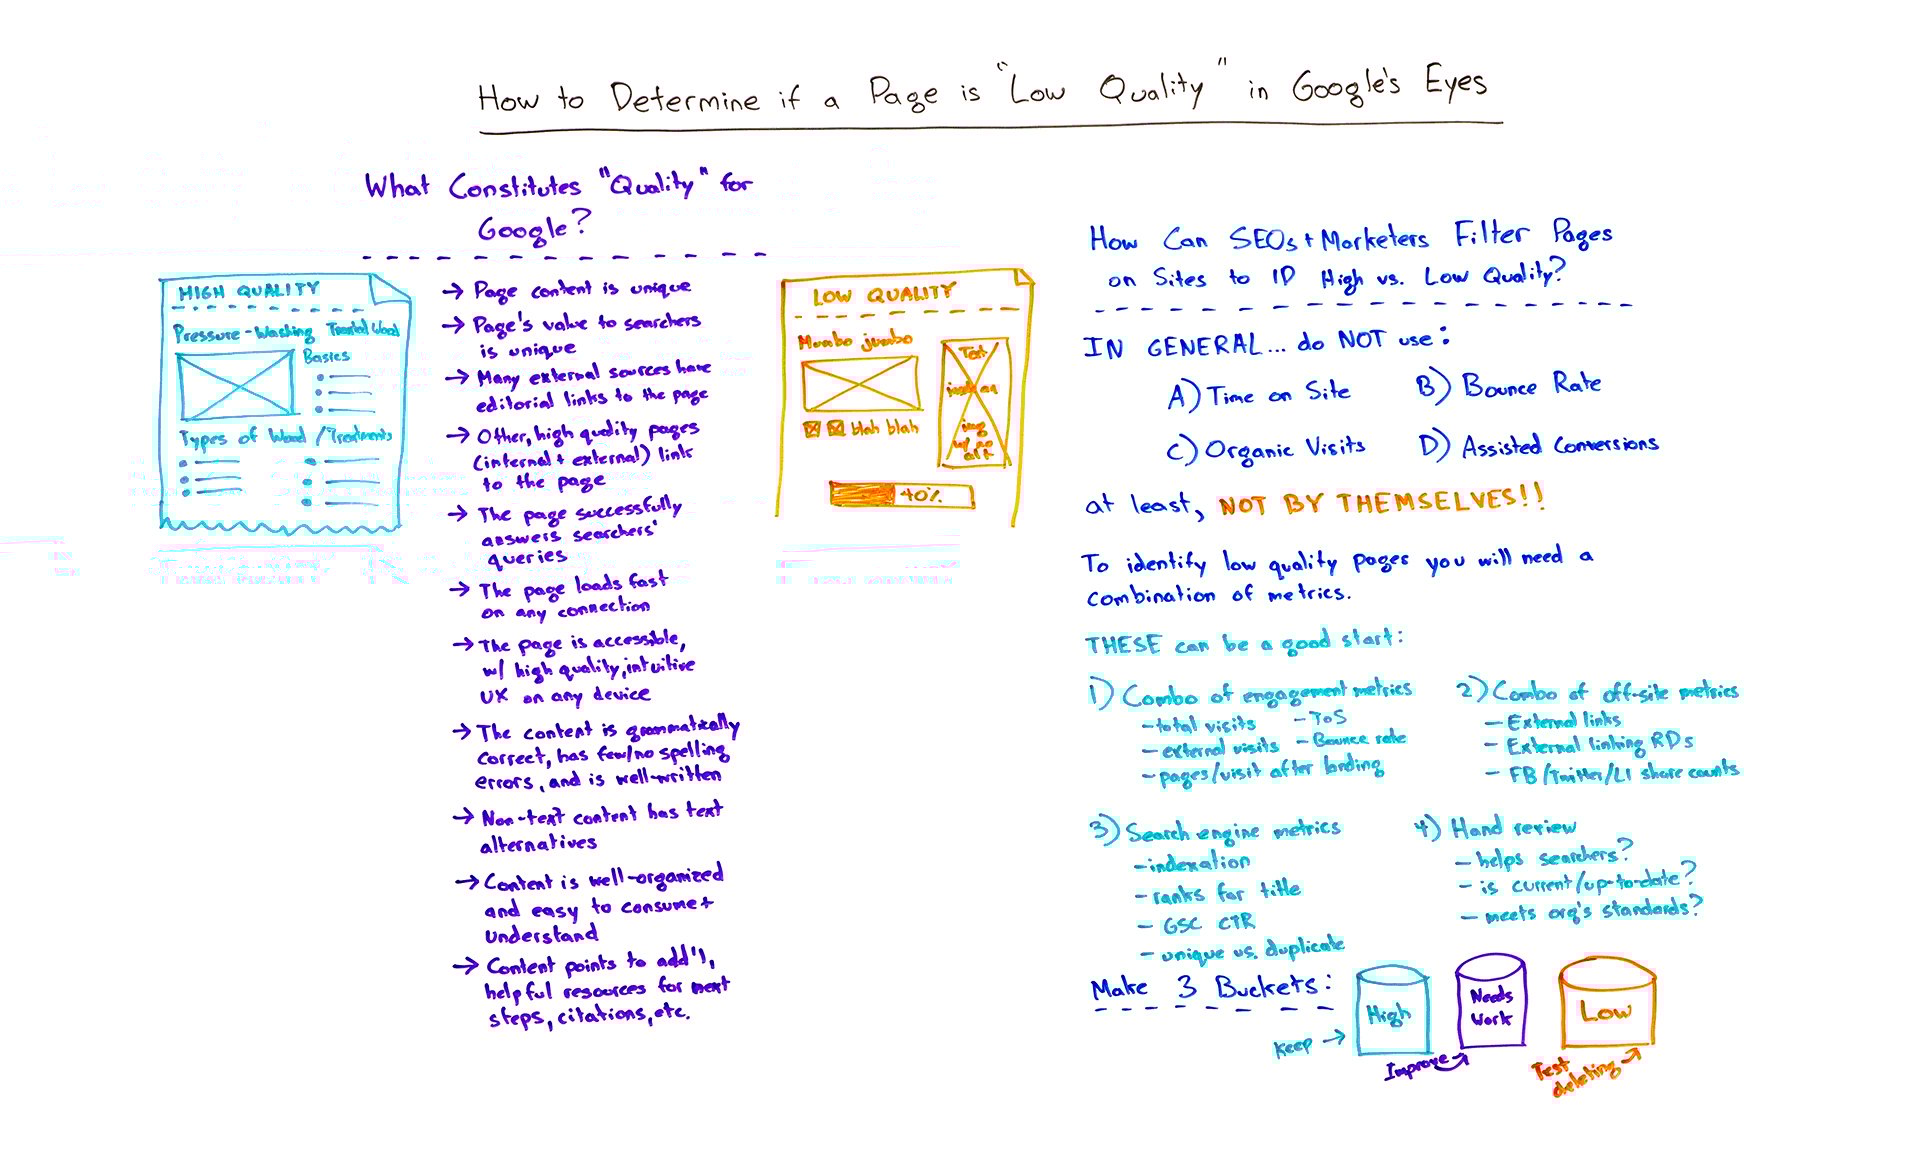 How to Determine if a Page is "Low Quality" in Google's Eyes
What Constitutes "Quality" for
Google?
HIGH QUALITY
Pressure-Washing Treated Wood
Basics
Types of Wood/Treatments
→ Page content is unique
→ Page's value to searchers
is unique
→ Many external sources have
editorial links to the page
→ Other, high quality pages
(internal + external) link
to the page
→ The page successfully
answers searchers'
queries
→ The page loads fast
on any connection
→ The page is accessible,
w/ high quality, intuitive
UX on any device
→ The content is grammatically
correct, has few/no spelling
errors, and is well-written
→ Non-text content has text
alternatives
→ Content is well-organized
and easy to consume +
understand
→ Content points to add'l,
helpful resources for next
steps, citations, etc.
LOW QUALITY
Mumbo jumbo
blah blah
Text
in an
img
w/ no
alt
40%
How Can SEOs + Marketers Filter Pages
on Sites to ID High vs. Low Quality?
IN GENERAL... do NOT use:
A) Time on Site B) Bounce Rate
C) Organic Visits D) Assisted Conversions
at least, NOT BY THEMSELVES!!
To identify low quality pages you will need a
combination of metrics.
THESE can be a good start:
1) Combo of engagement metrics
- total visits - ToS
- external visits - Bounce rate
- pages/visit after landing
2) Combo of off-site metrics
- External links
- External linking RDs
- FB/Twitter/LI share counts
3) Search engine metrics
- indexation
- ranks for title
- GSC CTR
- unique vs. duplicate
4) Hand review
- helps searchers?
- is current/up-to-date?
- meets org's standards?
Make 3 Buckets:
High
Needs
Work
Low
Keep →
Improve
Test
deleting